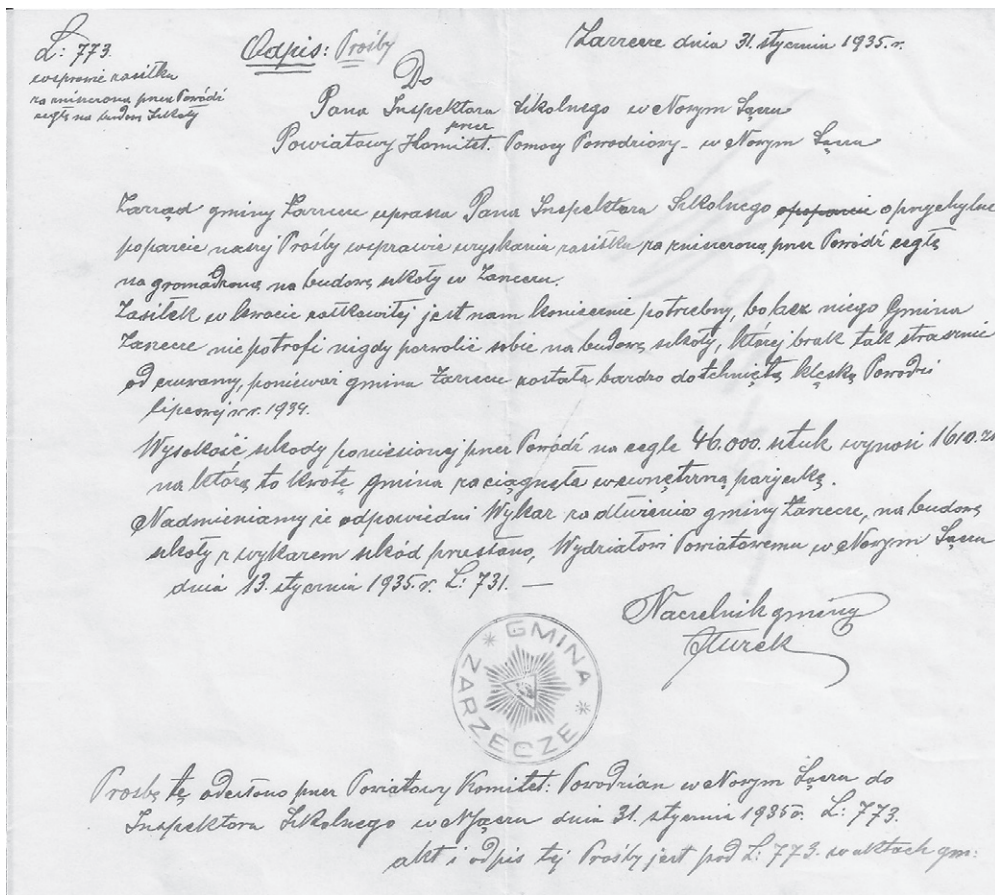 L: 773.
w sprawie zasiłku
za zniszczoną przez Powódź
cegłę na budowę Szkoły
Odpis: Prośby
Zarzecze dnia 31. stycznia 1935. r.
Do
Pana Inspektora Szkolnego w Nowym Sączu
przez
Powiatowy Komitet. Pomocy Powodziowy - w Nowym Sączu
Zarząd gminy Zarzecze uprasza Pana Inspektora Szkolnego o przychylne
poparcie naszej Prośby w sprawie uzyskania zasiłku za zniszczoną przez Powódź cegłę
nagromadzoną na budowę szkoły w Zarzeczu.
Zasiłek w kwocie całkowitej jest nam koniecznie potrzebny, bo bez niego Gmina
Zarzecze nie potrafi nigdy pozwolić sobie na budowę szkoły, której brak tak strasznie
odczuwamy, ponieważ gmina Zarzecze została bardzo dotchnięta klęską Powodzi
lipcowej w r. 1934.
Wysokość szkody poniesionej przez Powódź na cegle 46.000. sztuk wynosi 1610. zł
na którą to kwotę gmina zaciągnęła wewnętrzną pożyczkę.
Nadmieniamy że odpowiedni Wykaz zadłużenia gminy Zarzecze, na budowę
szkoły z wykazem szkód przesłano, Wydziałowi Powiatowemu w Nowym Sączu
dnia 13. stycznia 1935. r. L: 731. —
Naczelnik gminy
Turek
* GMINA *
ZARZECZE
Prośbę tę odesłono przez Powiatowy Komitet: Powodzian w Nowym Sączu do
Inspektora Szkolnego w N Sączu dnia 31. stycznia 1935 r. L: 773.
akt i odpis tej Prośby jest pod L: 773. w aktach gm: